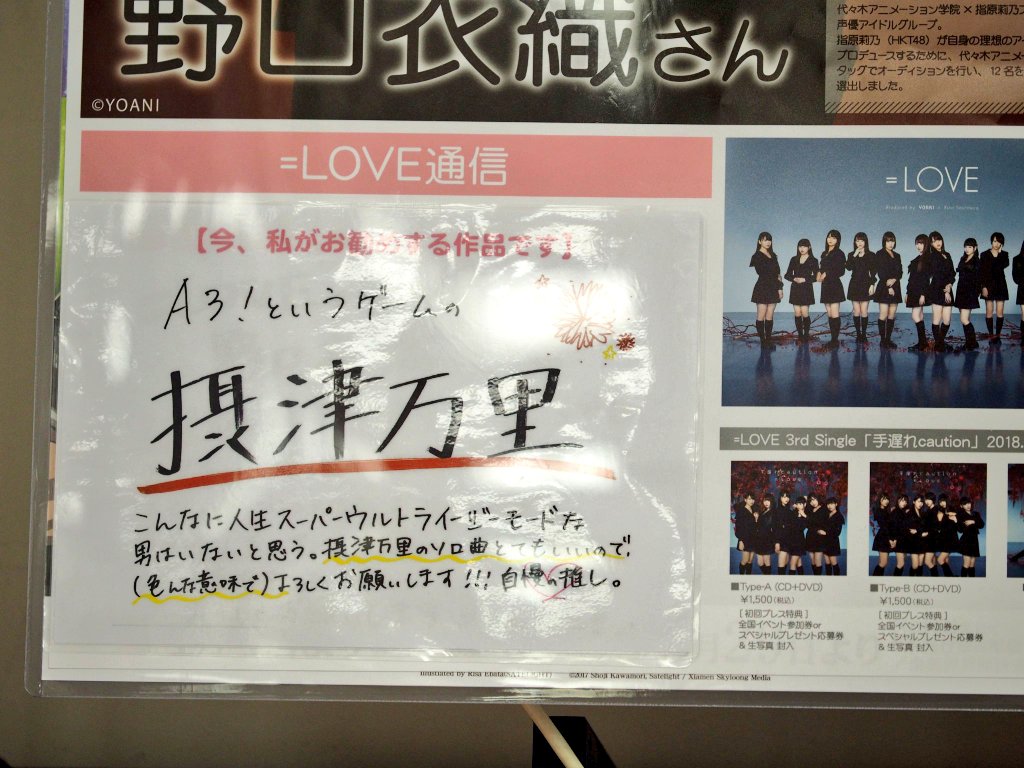 野口衣織さん
©YOANI
代々木アニメーション学院 × 指原莉乃プ
声優アイドルグループ。
指原莉乃（HKT48）が自身の理想のアー
プロデュースするために、代々木アニメー
タッグでオーディションを行い、12名を
選出しました。
=LOVE通信
【今、私がお勧めする作品です】
A3!というゲームの
摂津万里
こんなに人生スーパーウルトライージーモードな
男はいないと思う。摂津万里のソロ曲とてもいいので、
(色んな意味で)よろしくお願いします!!! 自慢の推し。
=LOVE
Produced by YOANI x Rino Sashihara
=LOVE 3rd Single「手遅れcaution」2018.
手遅れcaution
=LOVE
手遅れcaution
=LOVE
■Type-A (CD+DVD)
¥1,500(税込)
[ 初回プレス特典 ]
全国イベント参加券or
スペシャルプレゼント応募券
& 生写真 封入
■Type-B (CD+DVD)
¥1,500(税込)
[ 初回プレス特典 ]
全国イベント参加券or
スペシャルプレゼント応募券
& 生写真 封入
Illustrated by Risa Ebata ©2017 Shoji Kawamori, Satelight / Xiamen Skyloong Media